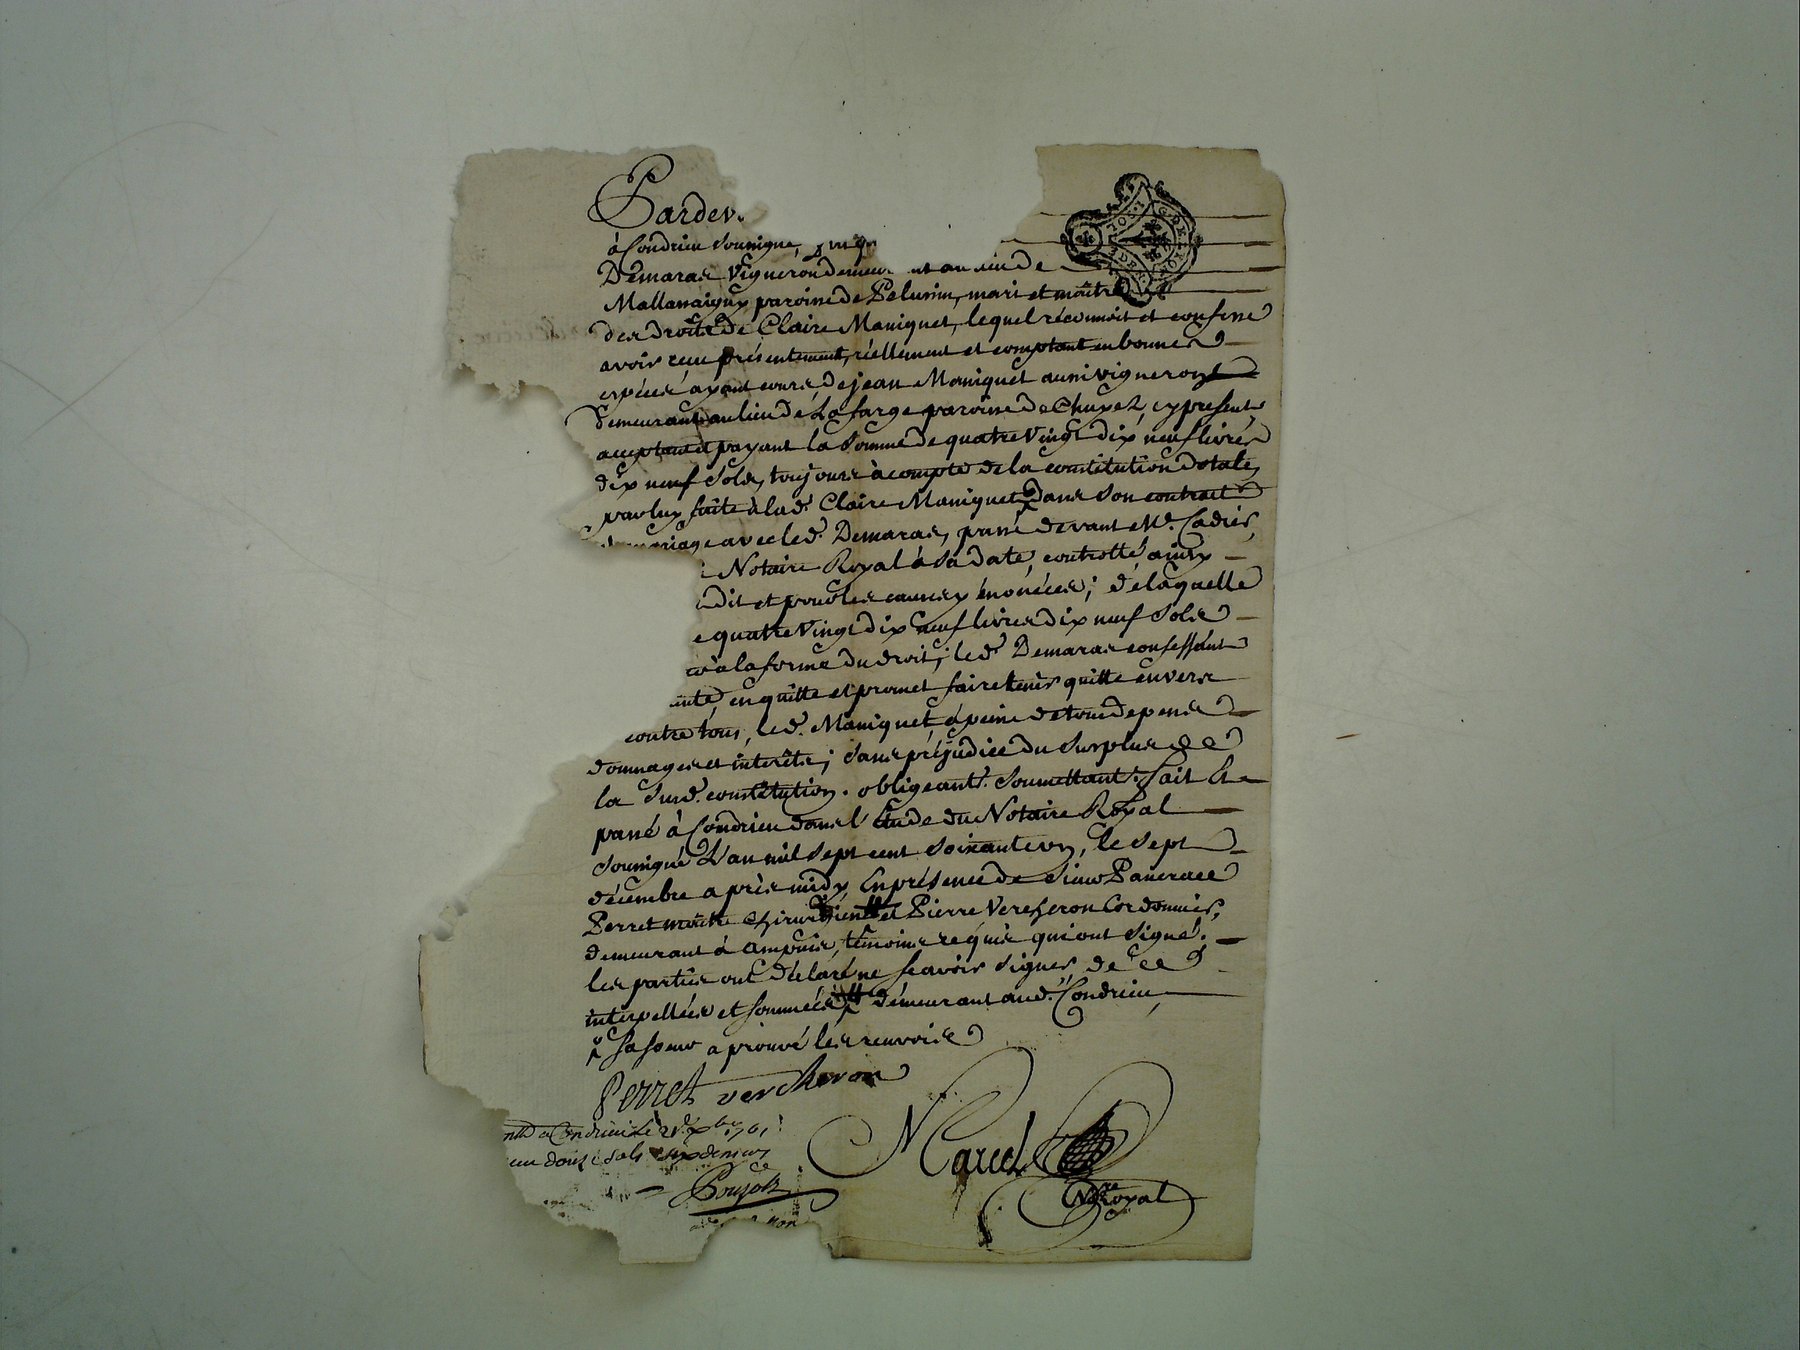 Pardev
à Condrieu soussigné,
Demaras vigneron demeur nt au lieu de
Mallanaigux paroisse de Pelussin, mari et maître
des droits de Claire Maniquet, lequel réconnoit et confesse
avoir reçu présentement, réellement et comptant en bonnes
espèces ayant cours de jean Maniquet aussi vigneron
demeurant au lieu de La farge paroisse de Chuyez, cy présent
acceptant et payant la Somme de quatre Vingt dix neuf livres
dix neuf Sols, toujours à compte de la constitution dotale,
par luy faite à lad. Claire Maniquet dans son contract
de mariage avec led. Demaras, passé devant Me. Cadier,
Notaire Royal à Sa date, controllé ainsy
dit et pour les causes y énoncées; de laquelle
e quatre Vingt dix neuf livres dix neuf Sols
à la forme du droit; led. Demaras confessant
ente, en quitte et promet faire tenir quitte envers
contre tous, led. Maniquet, à peine de tous depens
dommages et intérêts; sans préjudice du surplus de
la susd. constitution. obligeant. soumettant. fait et
passé à Condrieu dans l'Etude du Notaire Royal
soussigné L'an mil sept cent soixante un, le sept
décembre après midy, En présence de Sieur Pancrace
Perret maître chirurgien et Pierre Vercheron Cordonnier,
demeurant à ampuis, témoins requis qui ont signé.
les parties ont déclaré ne sçavoir signer, de ce
interpellées et sommées demeurant aud. Condrieu,
sa soeur aprouvé les renvois
Perret vercheron
à Condrieu Le 21 Xbre 1761
douze sols six deniers
Pouzols
Marcel
Nre Royal